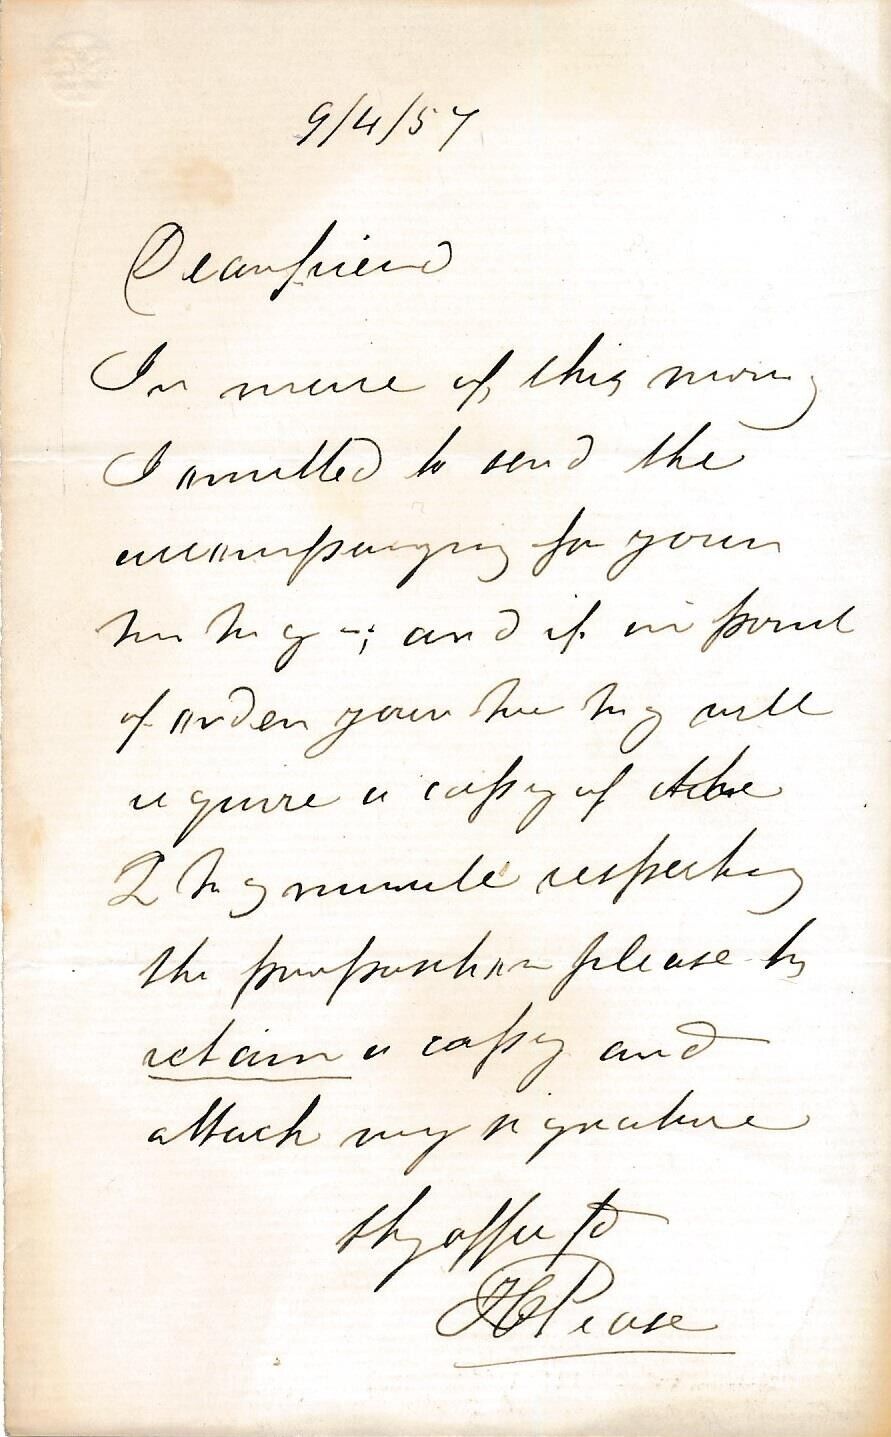 9/4/57
Dear friend
In mine of this morng
I omitted to send the
accompanying for your
mtg -; and if in point
of order your mtg will
require a copy of the
Q Mtg minute respecting
the proposition please to
retain a copy and
attach my signature
thy affec
Pease